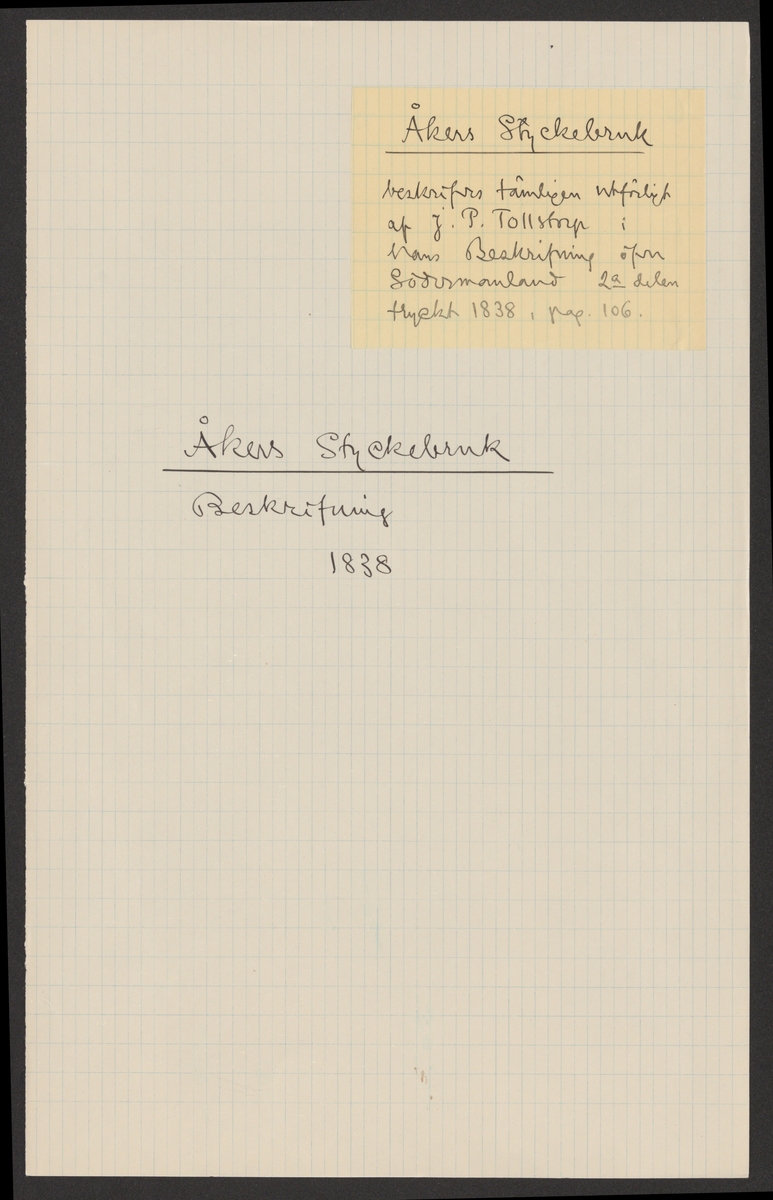 Åkers Styckebruk
beskrifves tämligen utförligt
af J. P. Tollstorp i
hans Beskrifning öfver
Södermanland 2a delen
tryckt 1838, pag. 106.
Åkers Styckebruk
Beskrifning
1838